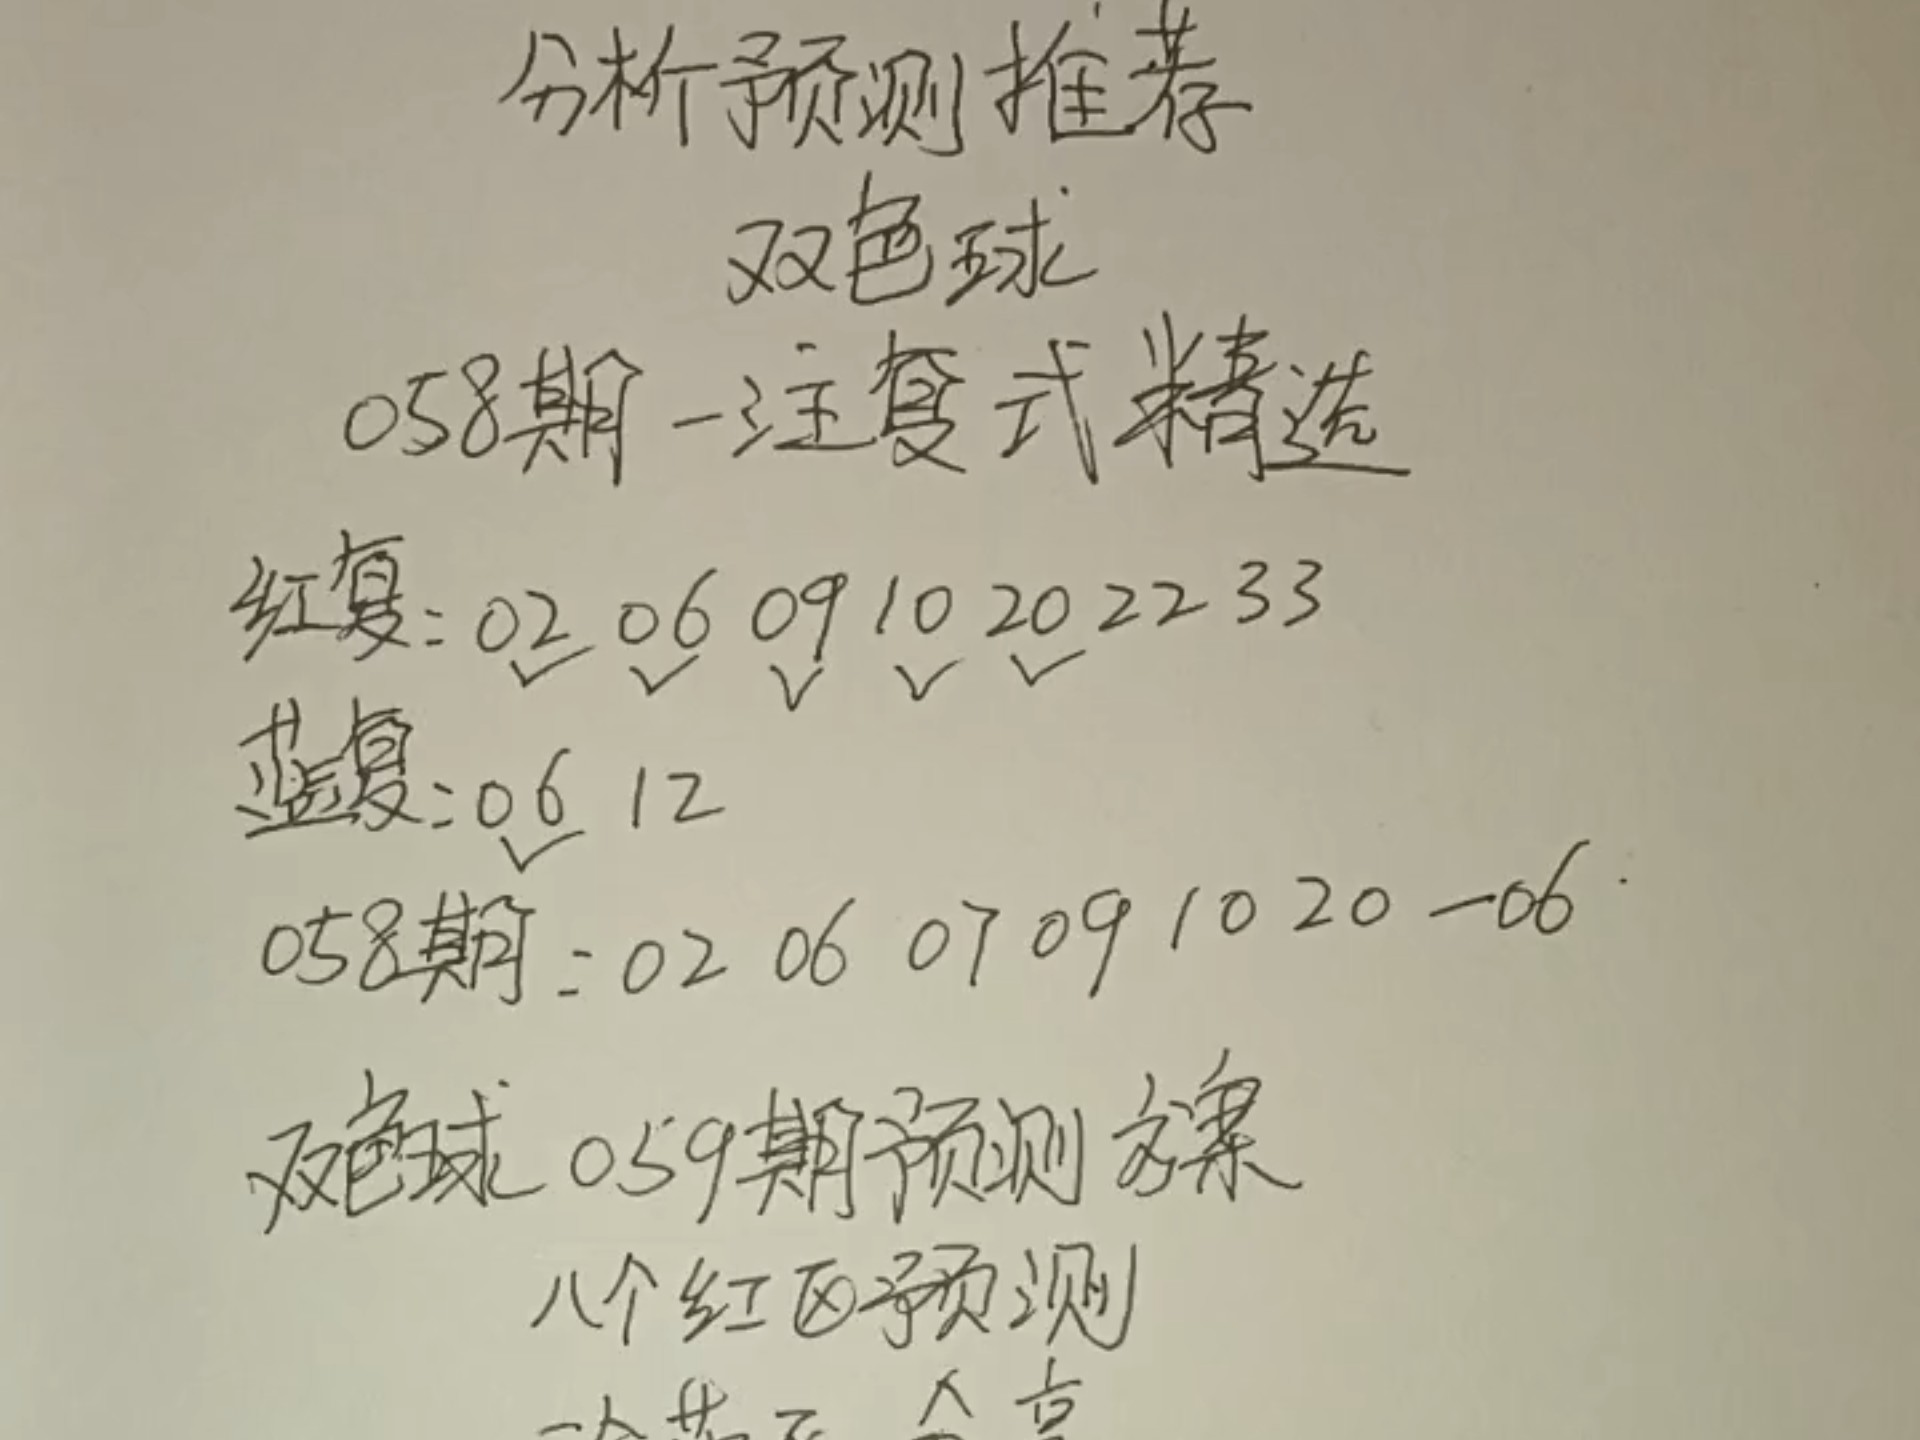 分析预测推荐
双色球
058期一注复式精选
红复:02 06 09 10 20 22 33
蓝复:06 12
058期:02 06 07 09 10 20 —06
双色球059期预测方案
八个红区预测